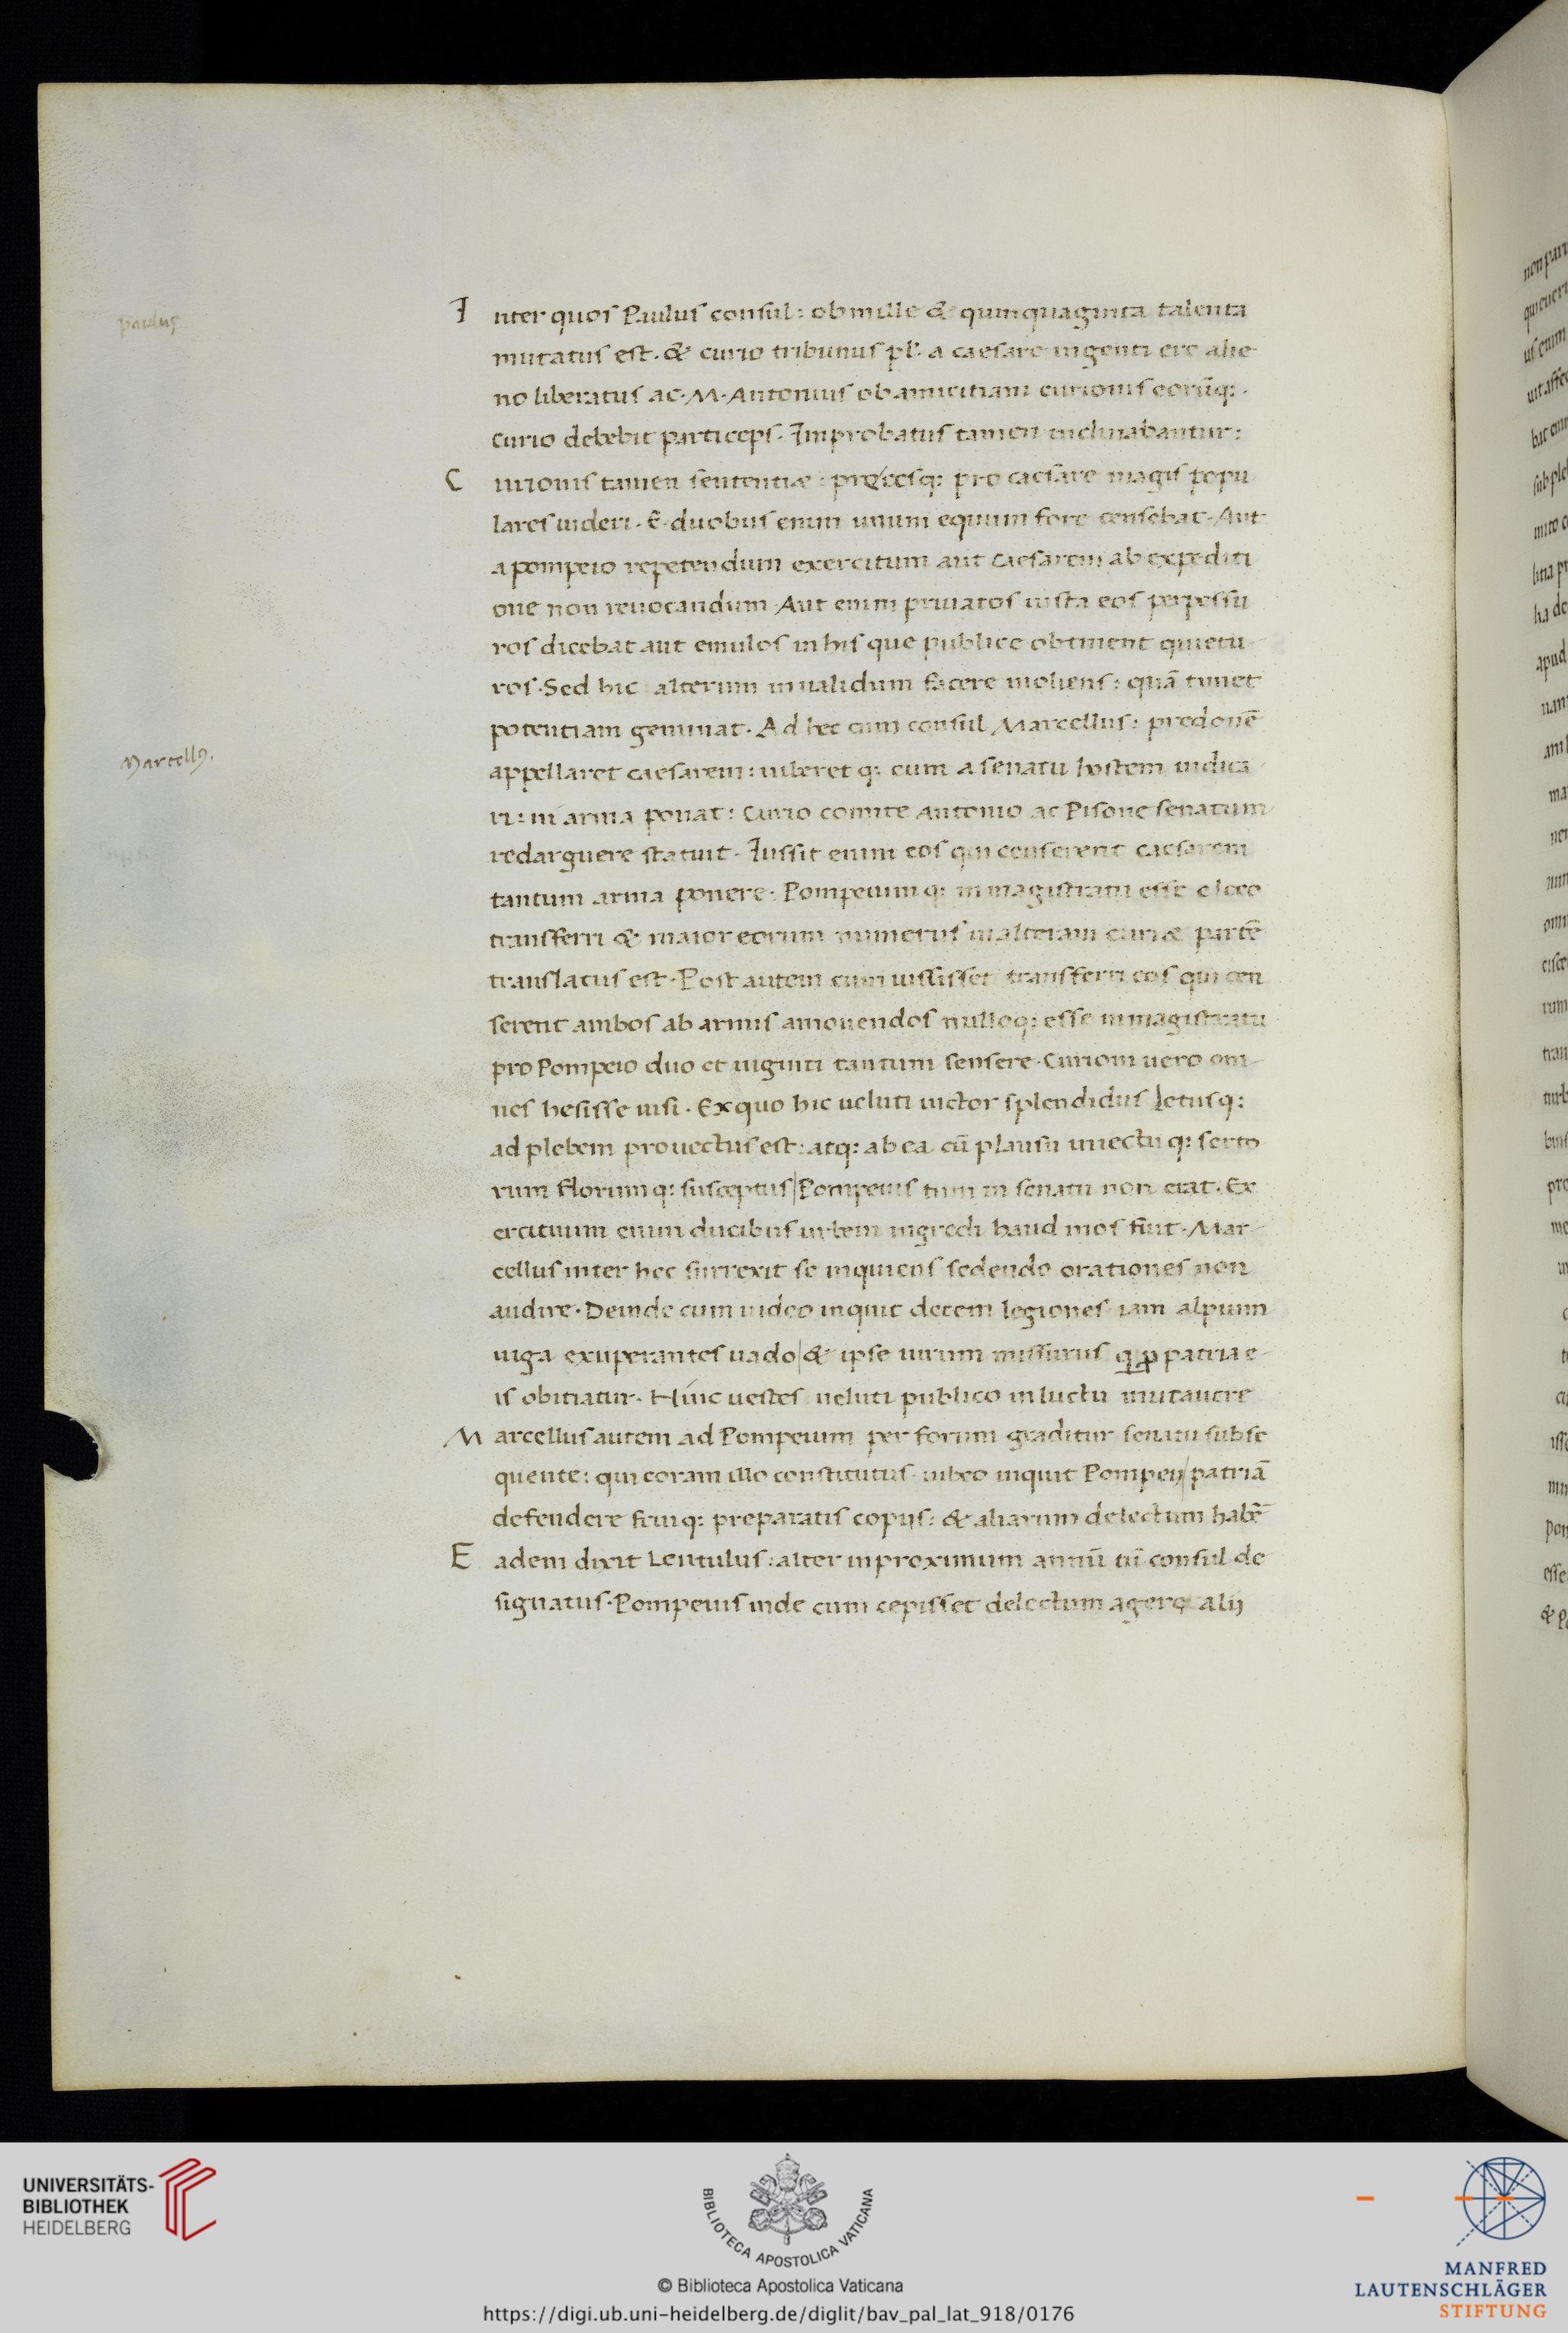 paulus
Inter quos Paulus consul: ob mille & quinquaginta talenta
mutatus est. & curio tribunus pl. a caesare ingenti ere alie
no liberatus ac. M. Antonius ob amicitiam curionis eorūq:
curio debebit particeps. Improbatus tamen inclinabantur:
Curionis tamen sententiæ: precesq: pro caesare magis popu
lares uideri. E duobus enim unum equum fore censebat. Aut
a pompeio repetendum exercitum aut caesarem ab expediti
one non reuocandum. Aut enim priuatos iusta eos perpessu
ros dicebat aut emulos in his que publice obtinent quietu
ros. Sed hic alterum inualidum facere moliens: quā timet
potentiam geminat. Ad hec cum consul Marcellus: predonē
Marcellꝰ.
appellaret caesarem: iuberet q: eum a senatu hostem iudica
ri: ni arma ponat: Curio comite Antonio ac Pisone senatum
redarguere statuit. Iussit enim eos qui censerent caesarem
tantum arma ponere. Pompeium q: in magistratu esse e loco
transferri & maior eorum numerus in alteram curiæ partē
translatus est. Post autem cum iussisset transferri eos qui cen
serent ambos ab armis amouendos nulloq: esse in magistratu
pro Pompeio duo et uiginti tantum sensere. Curioni uero om
nes hesisse uisi. Ex quo hic ueluti uictor splendidus letusq:
ad plebem prouectus est: atq: ab ea cū plausu inuectu q: serto
rum florum q: susceptus|Pompeius tum in senatu non erat. Ex
ercituum enim ducibus urbem ingredi haud mos fuit. Mar
cellus inter hec surrexit se inquiens sedendo orationes non
audire. Deinde cum uideo inquit decem legiones iam alpium
iuga exuperantes uado|& ipse uirum missurus q p patria e
is obitiatur. Hinc uestes ueluti publico in luctu mutauere
Marcellus autem ad Pompeium per forum graditur senatu subse
quente: qui coram illo constitutus iubeo inquit Pompeij|patriā
defendere seuiq: preparatis copijs: & aliarum delectum habē
Eadem dixit Lentulus: alter in proximum annū tū consul de
signatus. Pompeius inde cum cepisset delectum agere alij
UNIVERSITÄTS-
BIBLIOTHEK
HEIDELBERG
BIBLIOTECA APOSTOLICA VATICANA
© Biblioteca Apostolica Vaticana
https://digi.ub.uni-heidelberg.de/diglit/bav_pal_lat_918/0176
MANFRED
LAUTENSCHLÄGER
STIFTUNG